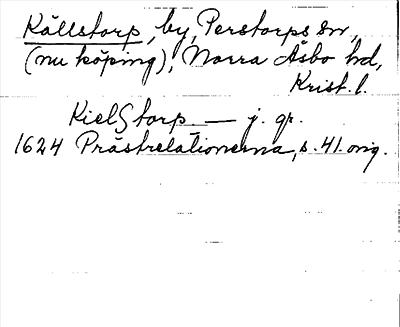 Källstorp, by, Perstorps sn,
(nu köping), Norra Åsbo hd,
Krist. l.
KielStorp — j. gr.
1624 Prästrelationerna, s. 41. orig.